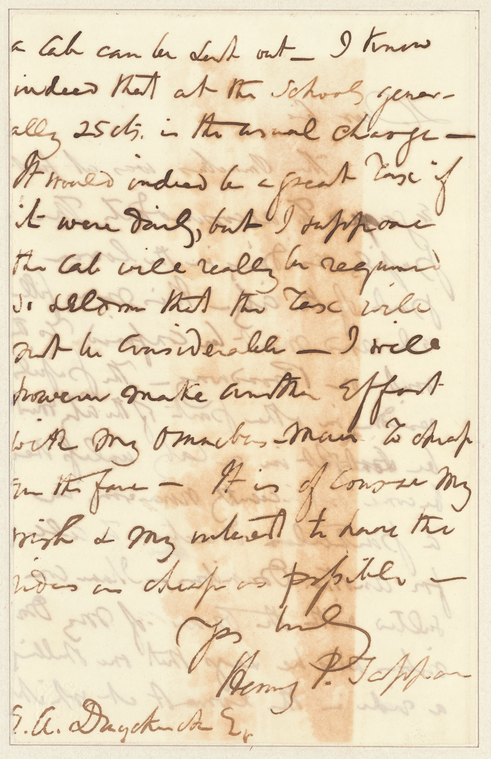 a Cab can be sent out — I know
indeed that at the Schools gener-
ally 25 cts. is the usual charge —
It would indeed be a great Tax if
it were daily, but I suppose
the Cab will really be required
so seldom that the Tax will
not be considerable — I will
however make another effort
with my Omnibus-Man to cheap
en the fare — It is of course my
wish & my interest to have the
rides as cheap as possible —
Yrs truly
Henry P. Tappan
E. A. Duyckinck Esq